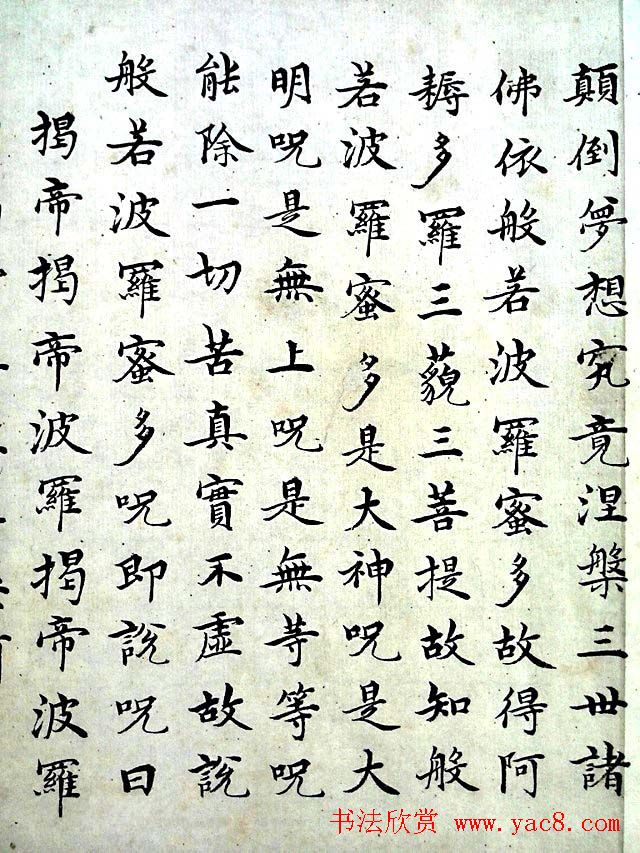 顛倒夢想究竟涅槃三世諸
佛依般若波羅蜜多故得阿
耨多羅三藐三菩提故知般
若波羅蜜多是大神呪是大
明呪是無上呪是無等等呪
能除一切苦真實不虛故說
般若波羅蜜多呪即說呪曰
揭帝揭帝波羅揭帝波羅
书法欣赏 www.yac8.com